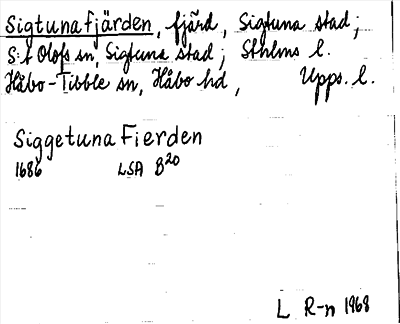 Sigtunafjärden, fjärd, Sigtuna stad;
S:t Olofs sn, Sigtuna stad; Sthlms l.
Håbo-Tibble sn, Håbo hd, Upps. l.
Siggetuna Fierden
1686 LSA B20
L R-n 1968